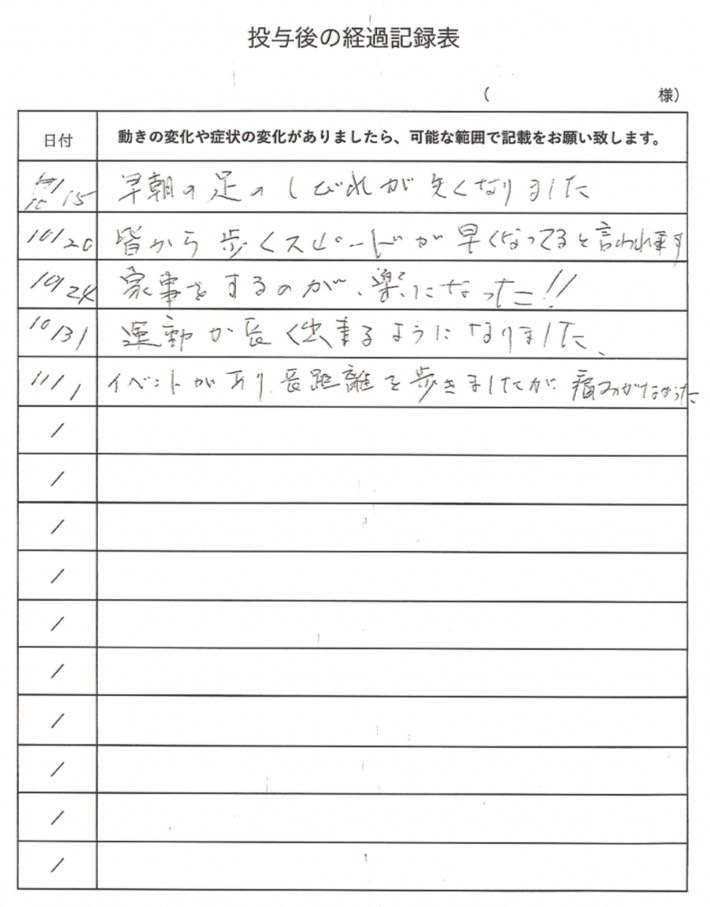 投与後の経過記録表
( 様)
日付 動きの変化や症状の変化がありましたら、可能な範囲で記載をお願い致します。
10/15 早朝の足のしびれが無くなりました
10/20 皆から歩くスピードが早くなってると言われます
10/24 家事をするのが、楽になった!!
10/31 運動が長く出来るようになりました、
11/1 イベントがあり、長距離を歩きましたが痛みがなかった
/
/
/
/
/
/
/
/
/
/